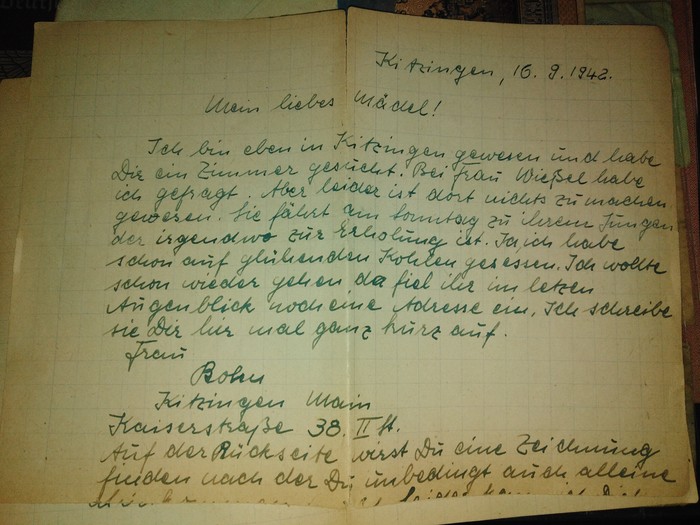 Kitzingen, 16. 9. 1942.
Mein liebes Mädel!
Ich bin eben in Kitzingen gewesen und habe
Dir ein Zimmer gesucht. Bei Frau Wießel habe
ich gefragt. Aber leider ist dort nichts zu machen
gewesen. Sie fährt am Sonntag zu ihrem Jungen
der irgendwo zur Erholung ist. Ja ich habe
schon auf glühenden Kohlen gesessen. Ich wollte
schon wieder gehen, da fiel ihr im letzen
Augenblick noch eine Adresse ein. Ich schreibe
sie Dir hir mal ganz kurz auf.
Frau
Kitzingen Main
Kaiserstraße 38. II St.
Auf der Rückseite wirst Du eine Zeichnung
finden nach der Du unbedingt auch alleine